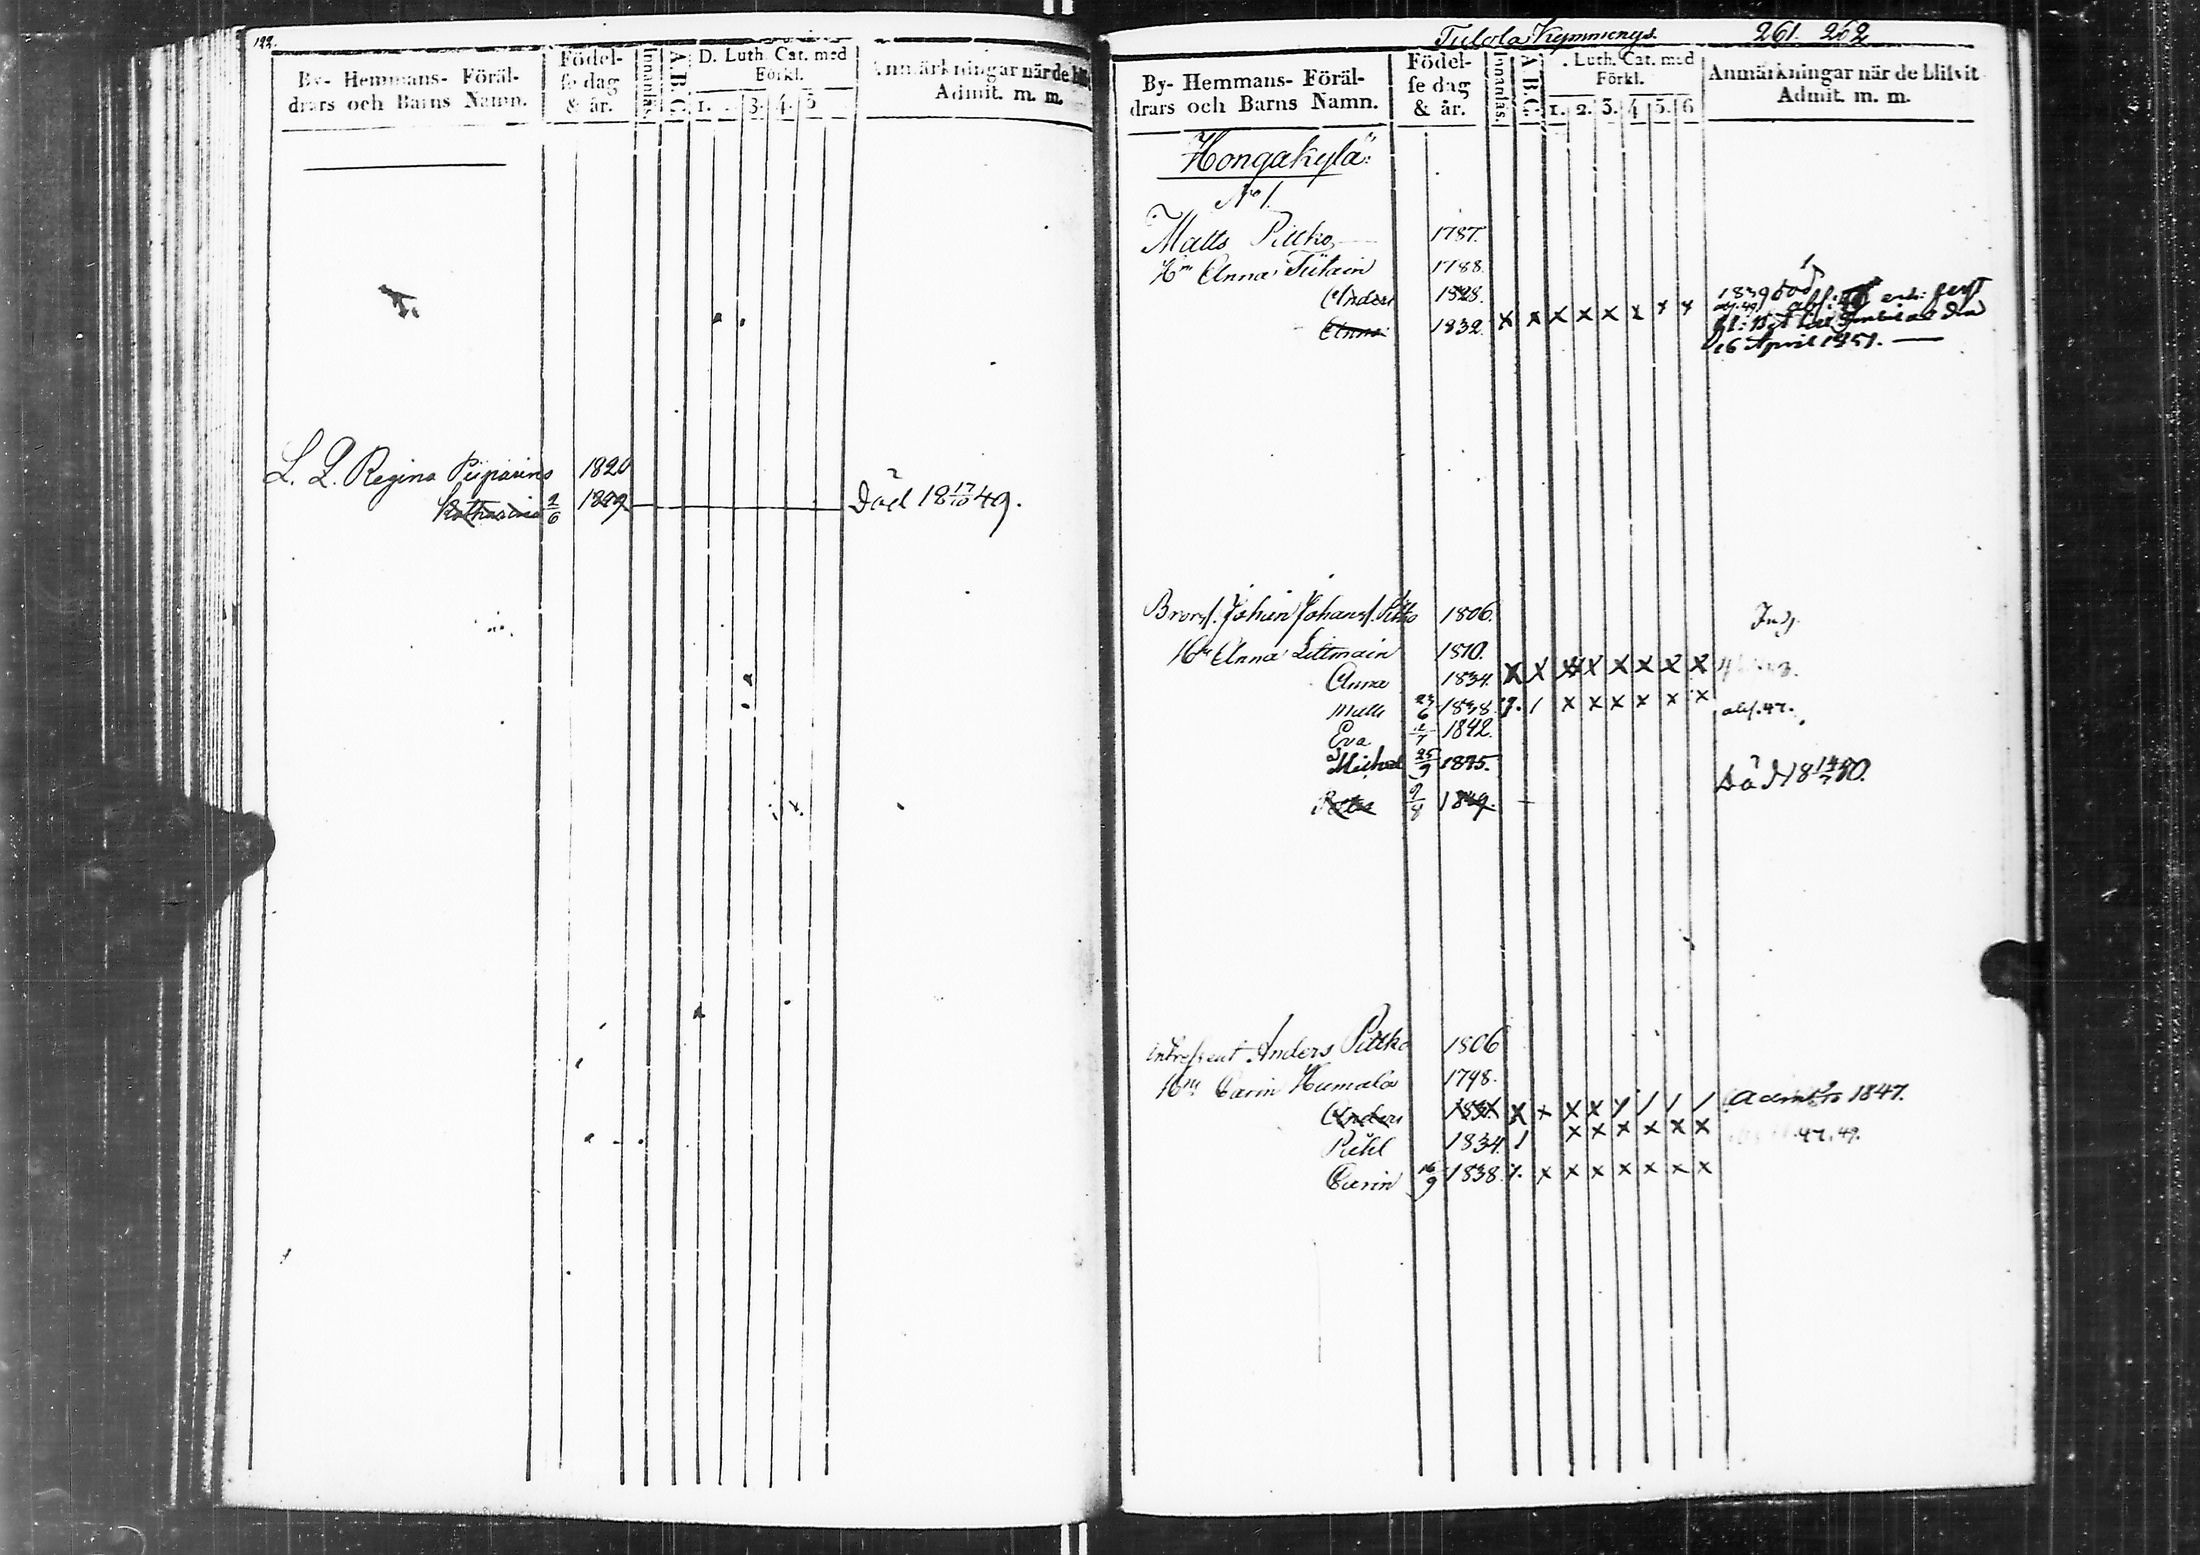 122.
By- Hemmans- Föräl-
drars och Barns Namn.
Födel-
se dag
& år.
Innanläs.
A.B.C.
D. Luth. Cat. med
Förkl.
1. 3. 4. 5
Anmärkningar när de blif
Admit. m. m.
L. Q. Regina Piiparins 1820
Katharina 2/6 1829 Död 18 17/10 49.
Tulola Kymmenys. 261. 262
By- Hemmans- Föräl-
drars och Barns Namn.
Födel-
se dag
& år.
Innanläs.
A.B.C.
. Luth. Cat. med
Förkl.
1. 2. 3. 4 5. 6
Anmärkningar när de blifvit
Admit. m. m.
Hongakylä:
No 1.
Matts Pittko 1787.
Hu Anna 1788.
Anders 1828. 1839 död
Anna 1832. x x x x x x x x
16 April 1851.
Brors. Johan Johans. Pittko 1806.
Hu Anna 1810.
Anna 1834. X X X X X X X X
Matts 23/6 1838. 1 x x x x x x abs. 47.
Eva 12/7 1842.
Michel 25/9 1845.
9/8 1849. Död 18 14/7 50.
Intressent Anders Pittko 1806
Hu Carin Humala 1798.
Anders 1831 X x X X / / / 1847.
Pähl 1834. 1 x x x x x x 47. 49.
Carin 16/9 1838. x x x x x x x